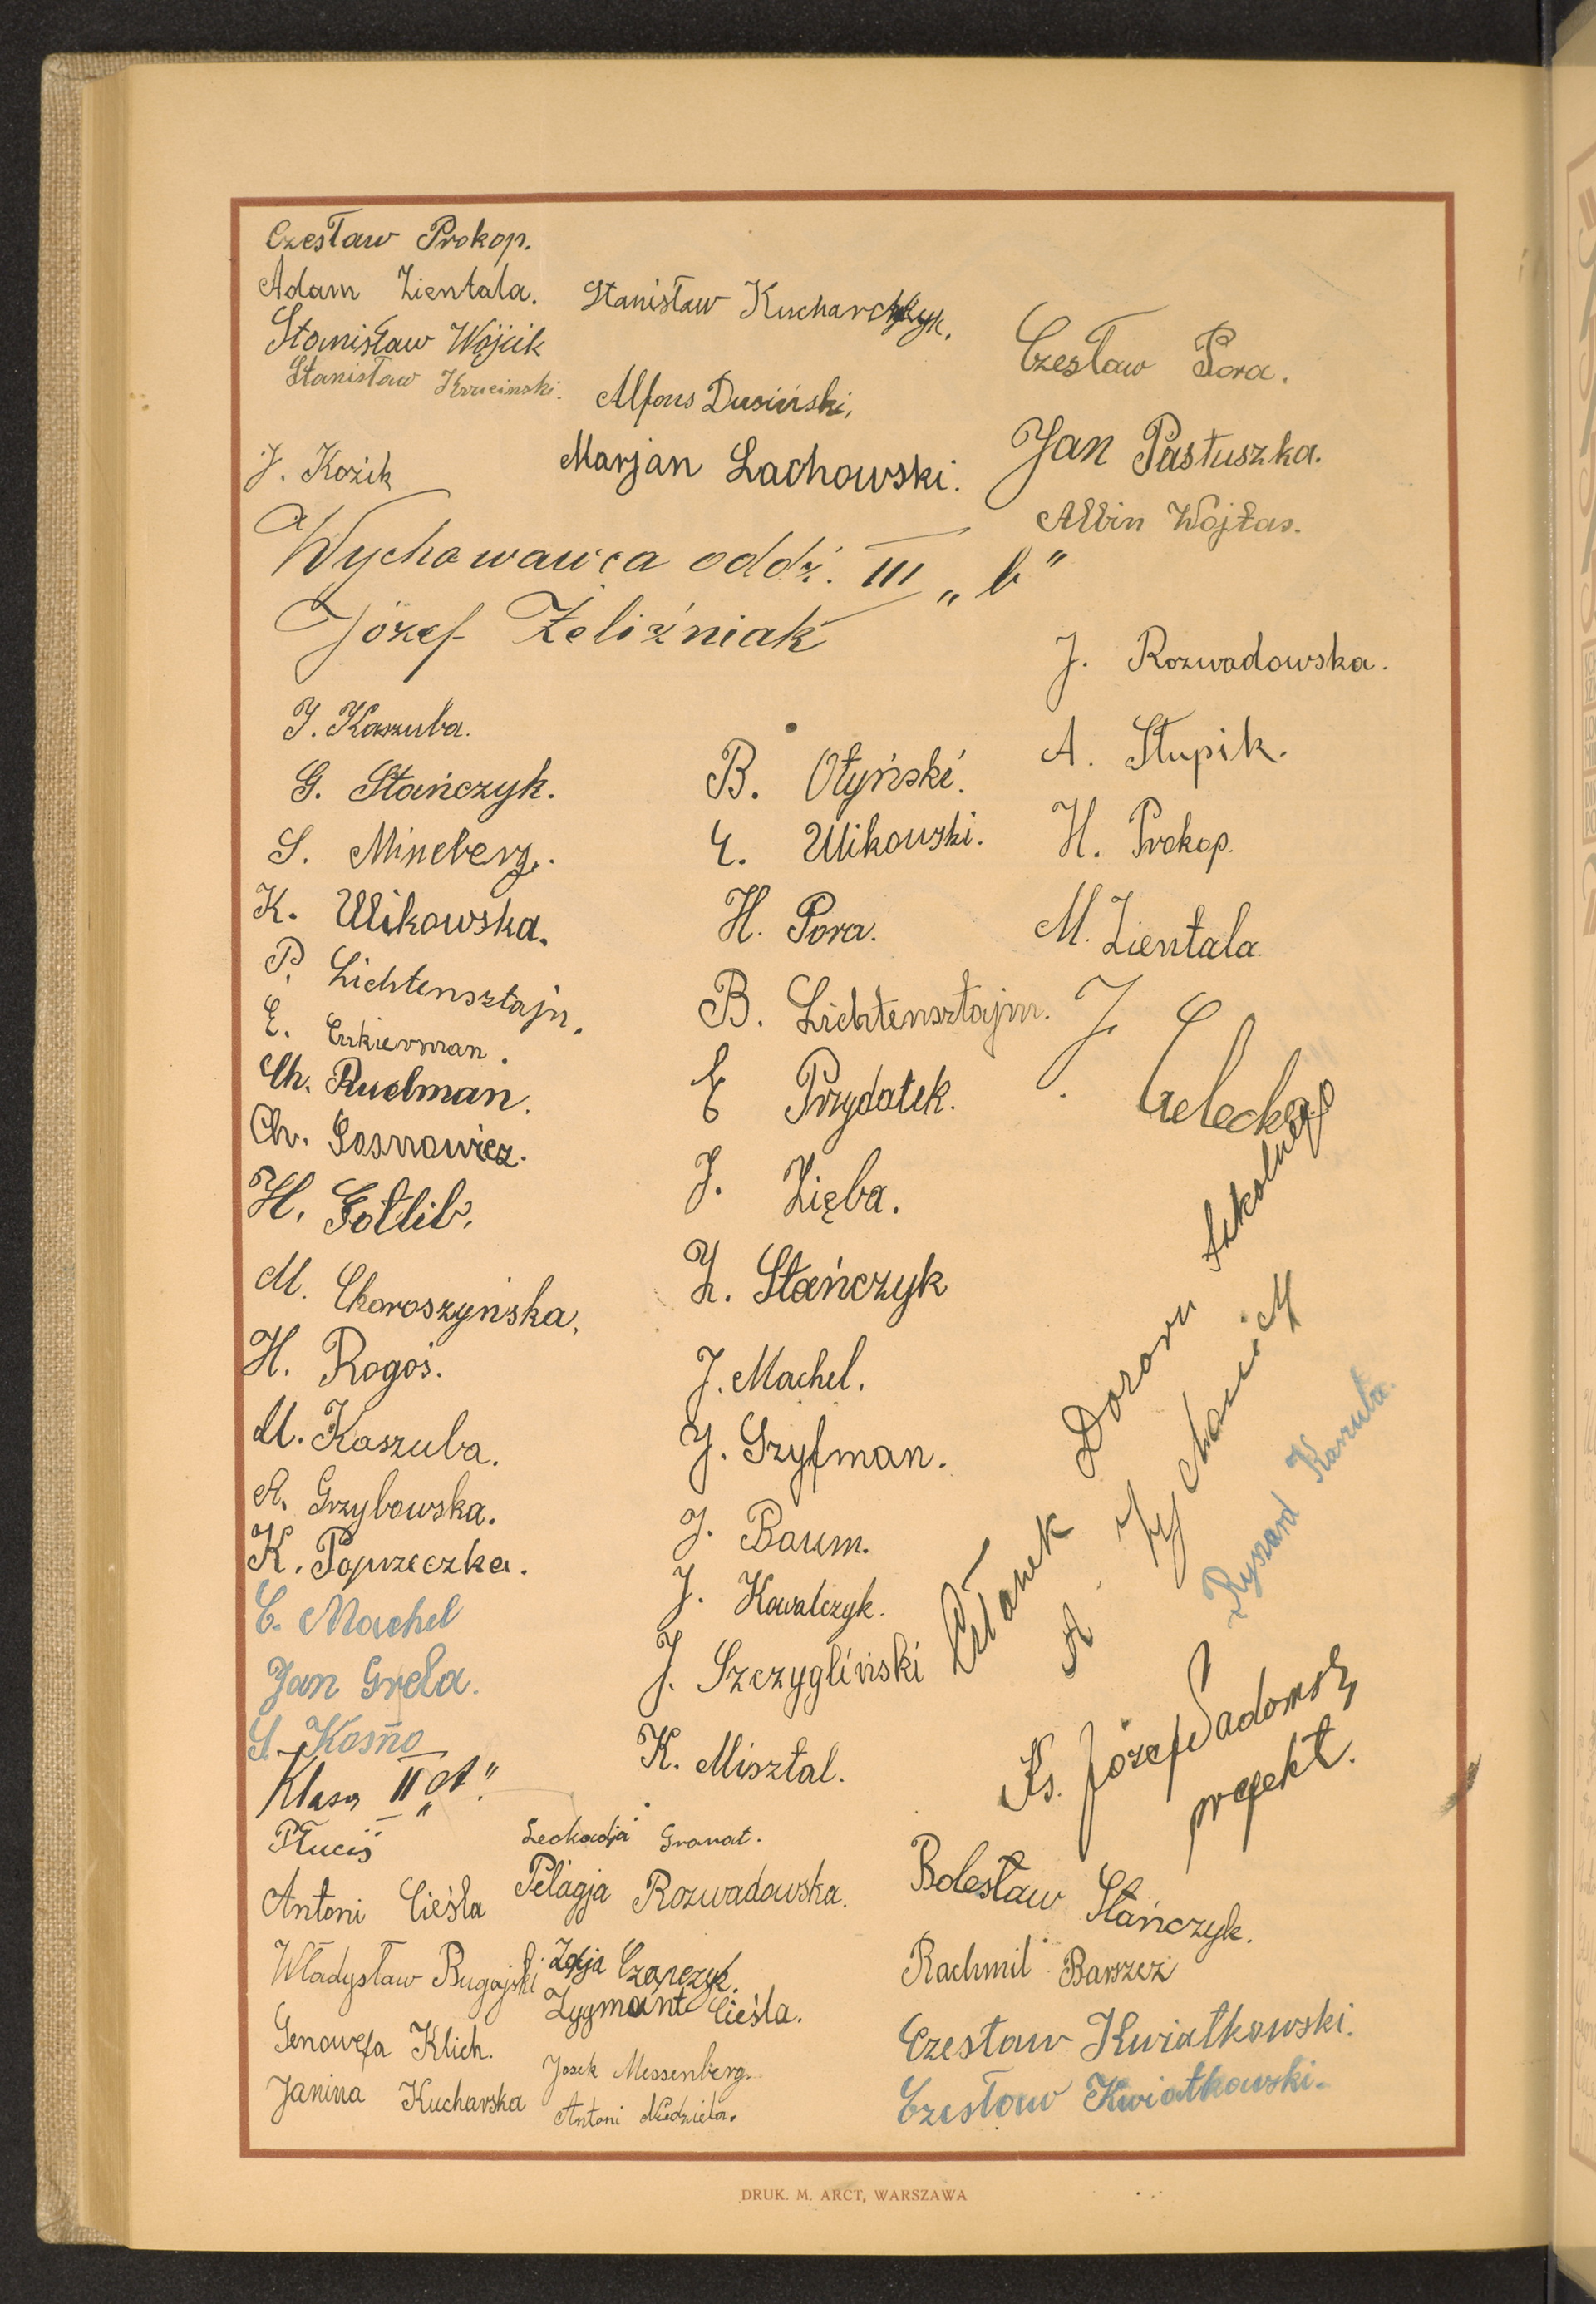 Czesław Prokop.
Adam Zientala.
Stanisław Wójcik
Stanisław
J. Kozik
Stanisław
Alfons Dusiński,
Marjan Lachowski.
Czesław Pora.
Jan Pastuszka.
Albin Wojtas.
Wychowawca oddz. III „b”
Józef Żeliźniak
J. Kaszuba.
G. Stańczyk.
S. Mineberg.
K. Ulikowska.
P. Lichtensztajn.
E. Cukierman.
Ch. Rudman.
Ch. Sosnowicz.
H. Gotlib.
M. Choroszyńska,
H. Rogoś.
M. Kaszuba.
A. Grzybowska.
K. Poprzeczka.
C. Machel
Jan Greła.
S. Kosno
Klasa II „A”.
B. Otyński.
Ulikowski.
H. Pora.
B. Lichtensztajn.
E Przydatek.
J. Zięba.
Z. Stańczyk
J. Machel.
J. Gryfman.
J. Baum.
J. Kowalczyk.
J. Szczygliński
K. Misztal.
J. Rozwadowska.
A. Słupik.
H. Prokop.
M. Zientala.
J.
Członek Dozoru Szkolnego
A.
Ryszard Kaszuba.
Ks. Józef Sadomski
prefekt.
Płucis
Antoni Cieśla
Władysław Bugajski
Genowefa Klich.
Janina Kucharska
Leokadja Granat.
Pelagja Rozwadowska.
Zofja Czapczyk.
Zygmunt Cieśla.
Josek Messenberg.
Antoni Niedziela.
Bolesław Stańczyk.
Rachmil Barszcz
Czesław Kwiatkowski.
Czesław Kwiatkowski.
DRUK. M. ARCT, WARSZAWA